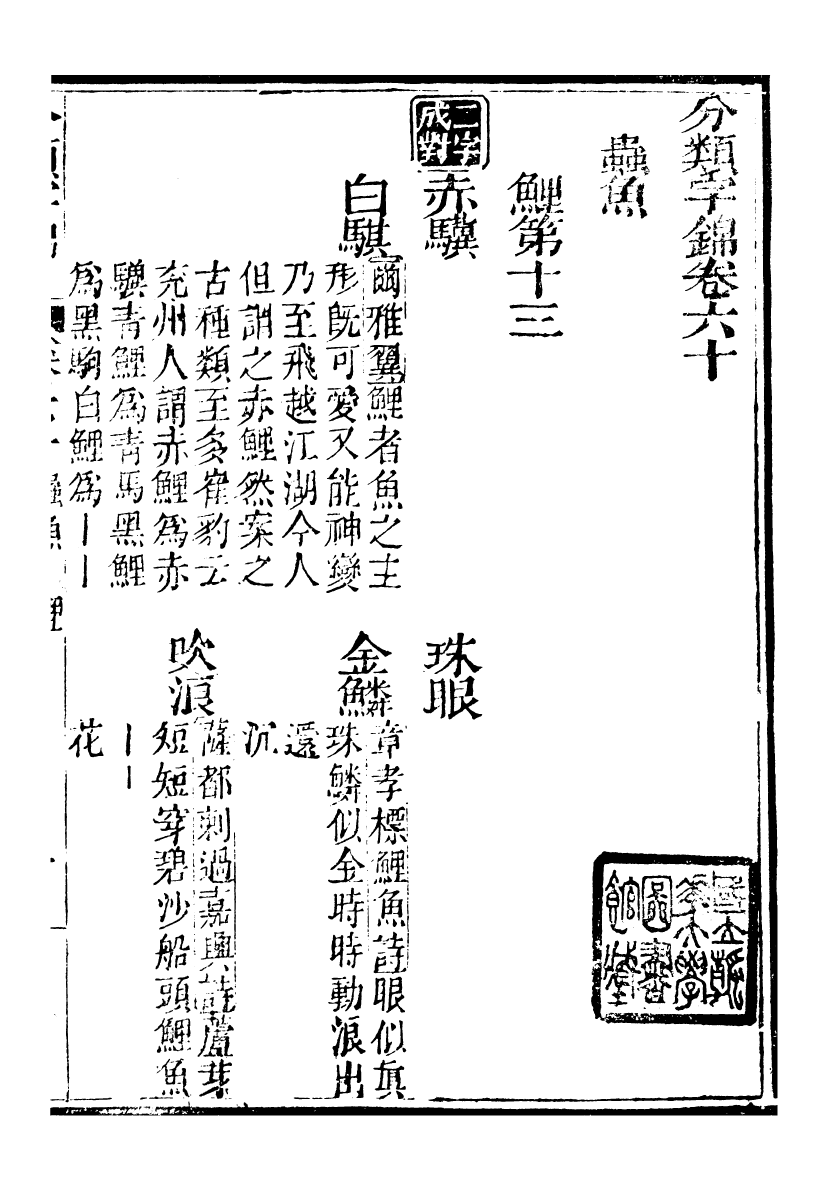 分類字錦卷六十
蟲魚
鯉第十三
二字成對
赤驥
珠眼
白騏
爾雅翼鯉者魚之主
形既可愛又能神變
乃至飛越江湖今人
但謂之赤鯉然案之
古種類至多崔豹云
兗州人謂赤鯉為赤
驥青鯉為青馬黑鯉
為黑駒白鯉為丨丨
金鱗
章孝標鯉魚詩眼似真
珠鱗似金時時動浪出
還
沉
吹浪
薩都剌過嘉興詩蘆芽
短短穿碧沙船頭鯉魚
丨丨
花
國立
大學
圖書
館藏
卷六十 蟲魚 鯉